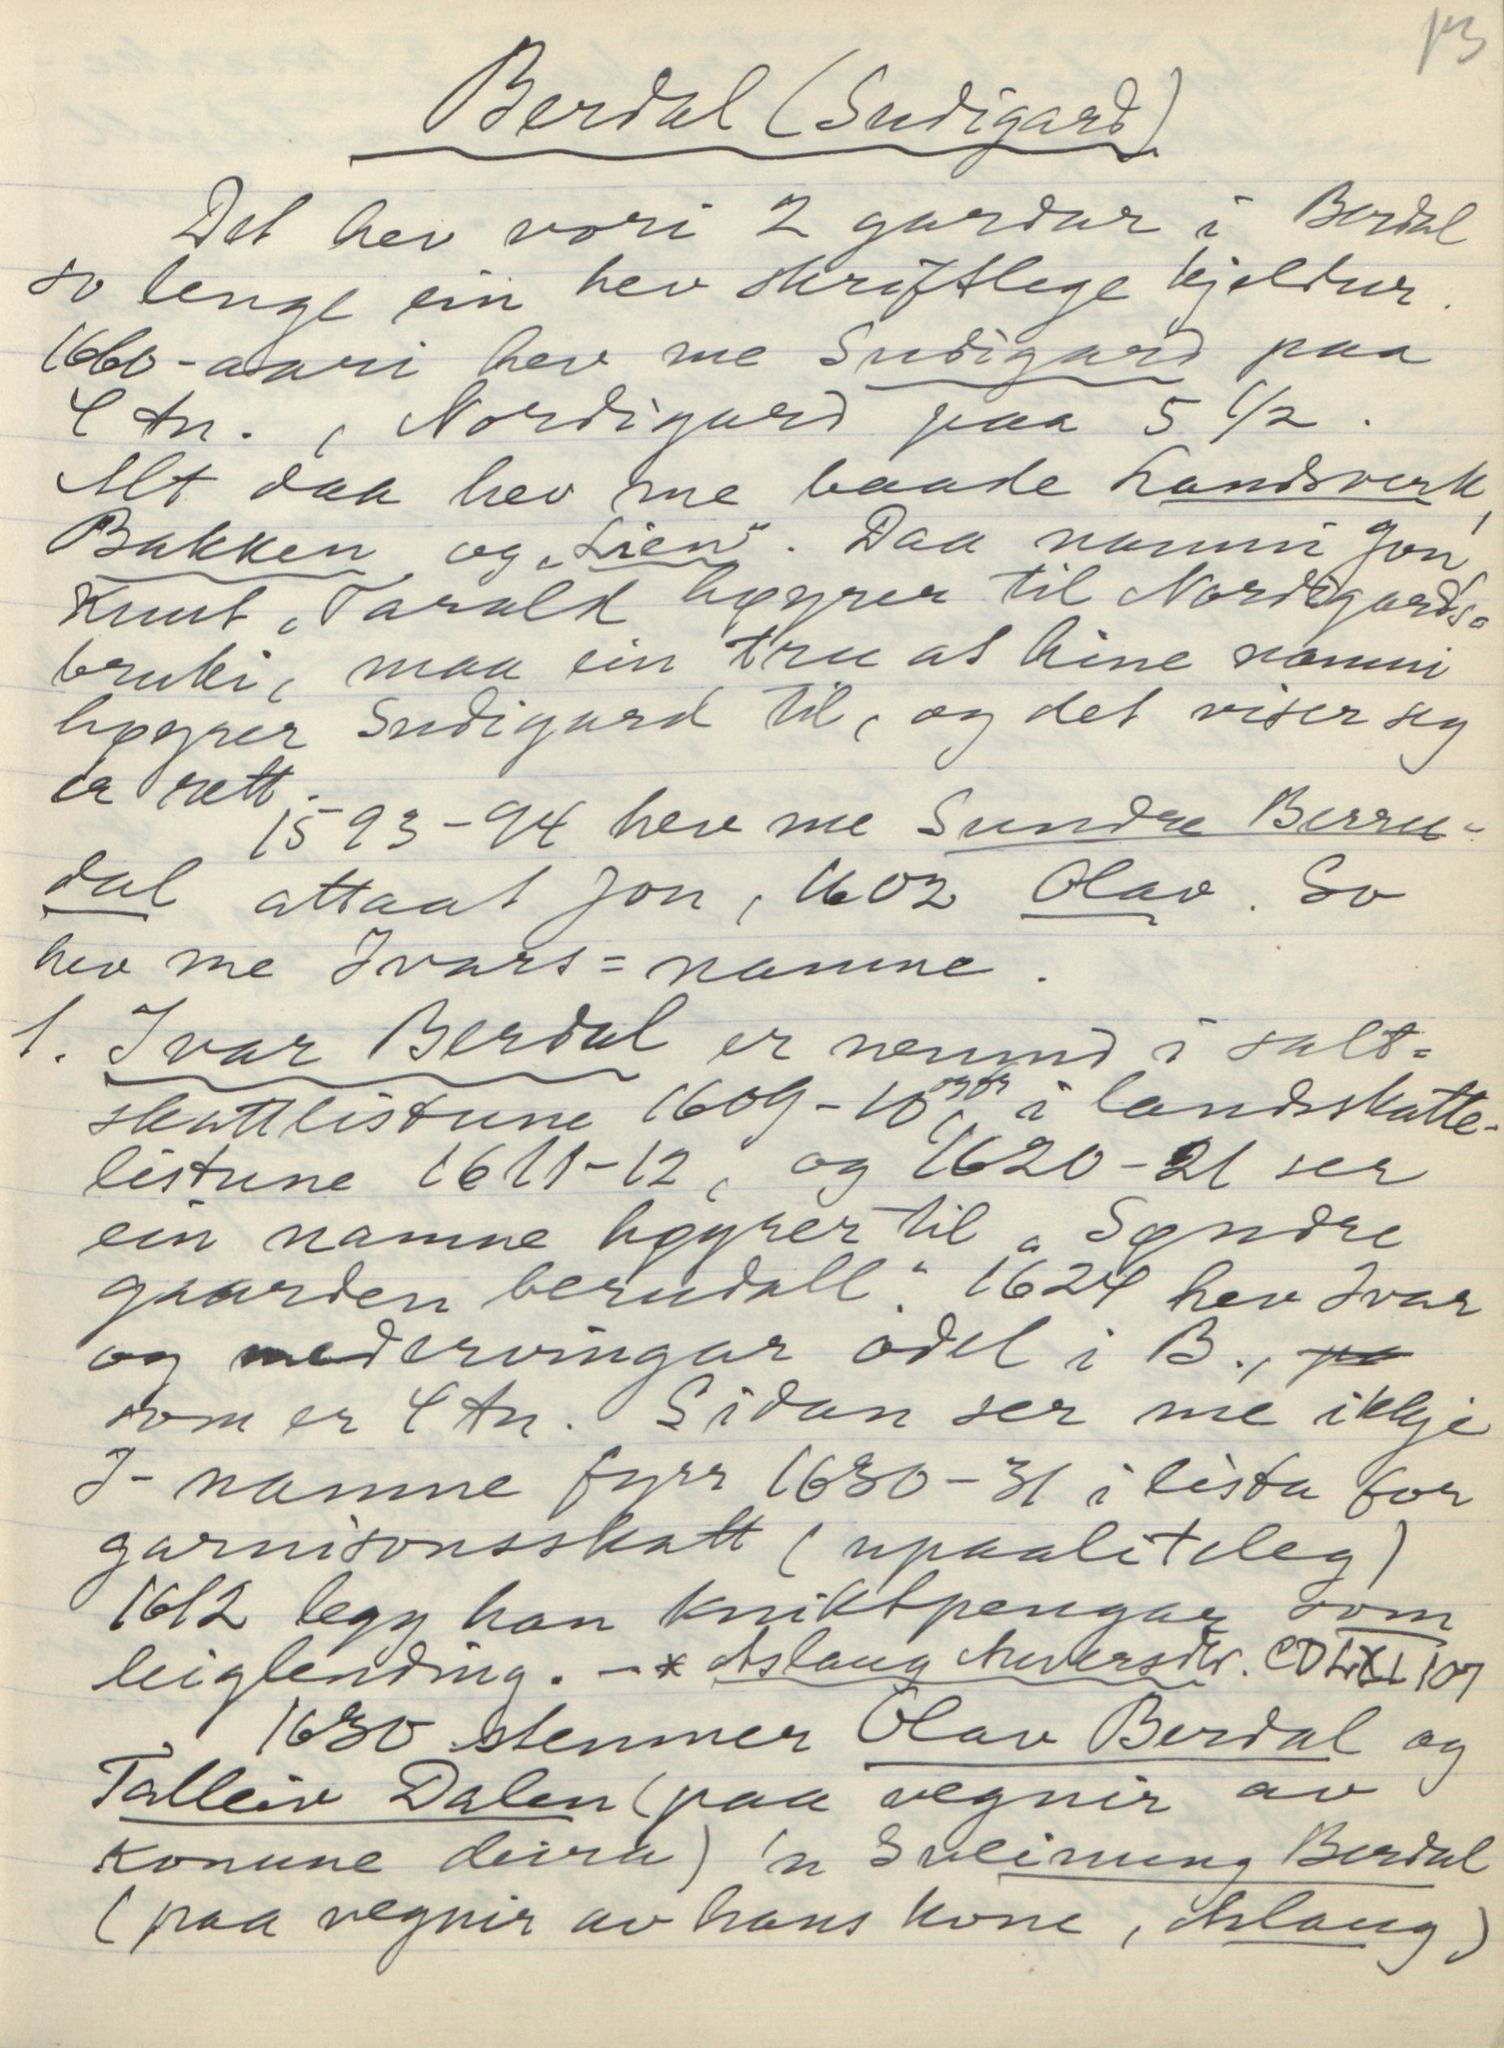 13
Berdal (Sudigard)
Det hev vori 2 gardar i Berdal
so lenge ein hev skriftlege kjeldur.
1660-aari hev me Sudigard paa
4 tn., Nordigard paa 5 1/2.
Alt daa hev me baade Landsverk,
Bakken og „Lien“. Daa namni Jon,
Knut, Tarald høyrer til Nordigards-
bruki, maa ein tru at hine namni
høyrer Sudigard til, og det viser seg
er rett.
1593-94 hev me Sundre Berru-
dal attaat Jon, 1602 Olav. So
hev me Ivars=namne.
1. Ivar Berdal er nemnd i salt=
skattlistune 1609-10, i landskatte-
listune 1611-12, og 1620-21 ser
ein namne høyrer til „Søndre
gaarden berudall“. 1624 hev Ivar
og medervingar odel i B.,
som er 4 tn. Sidan ser me ikkje
I-namne fyrr 1630-31 i lista for
garnisonsskatt (upaaliteleg)
1612 legg han kniktpengar som
leiglending. -* Aslaug 107
1630 stemner Olav Berdal og
Talleiv Dalen (paa vegnir av
konune deira) 'n Sveinung Berdal
(paa vegnir av hans kone, Aslaug)